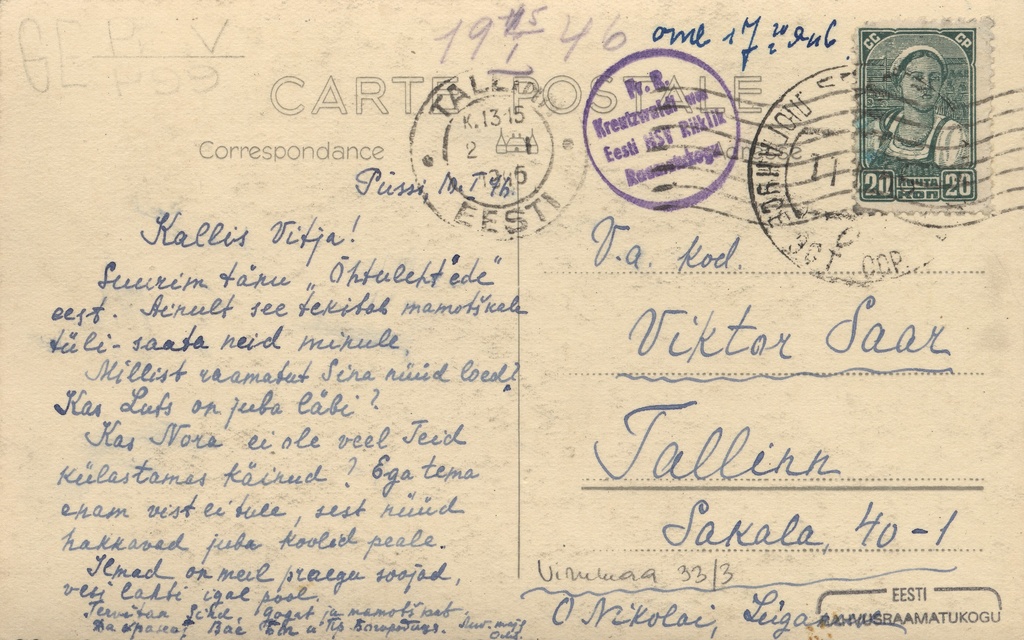 19 15/I 46
от 17го янв
CARTE POSTALE
Correspondance
TALLINN
K. 13-15
EESTI
Fr. R. Kreutzwaldi nim.
Eesti NSV Riiklik
Raamatukogu
СС СР
20 ПОЧТА КОП 20
ЭСТ. ССР.
Püssi 10. I 46.
Kallis Vitja!
Suurim tänu „Õhtuleht'ede"
eest. Ainult see tekitab mamotškale
tüli - saata neid minule.
Millist raamatut Sina nüüd loed?
Kas Luts on juba läbi?
Kas Nora ei ole veel Teid
külastamas käinud? Ega tema
enam vist ei tule, sest nüüd
hakkavad juba koolid peale.
Ilmad on meil praegu soojad,
vesi lahti igal pool.
Tervitan Sind, Gogat ja mamotškat.
Да хранет Вас Бог и Пр. Богородица.
V.a. kod.
Viktor Saar
Tallinn
Sakala, 40-1
Virumaa 33/3
O Nikolai,
EESTI
RAHVUSRAAMATUKOGU